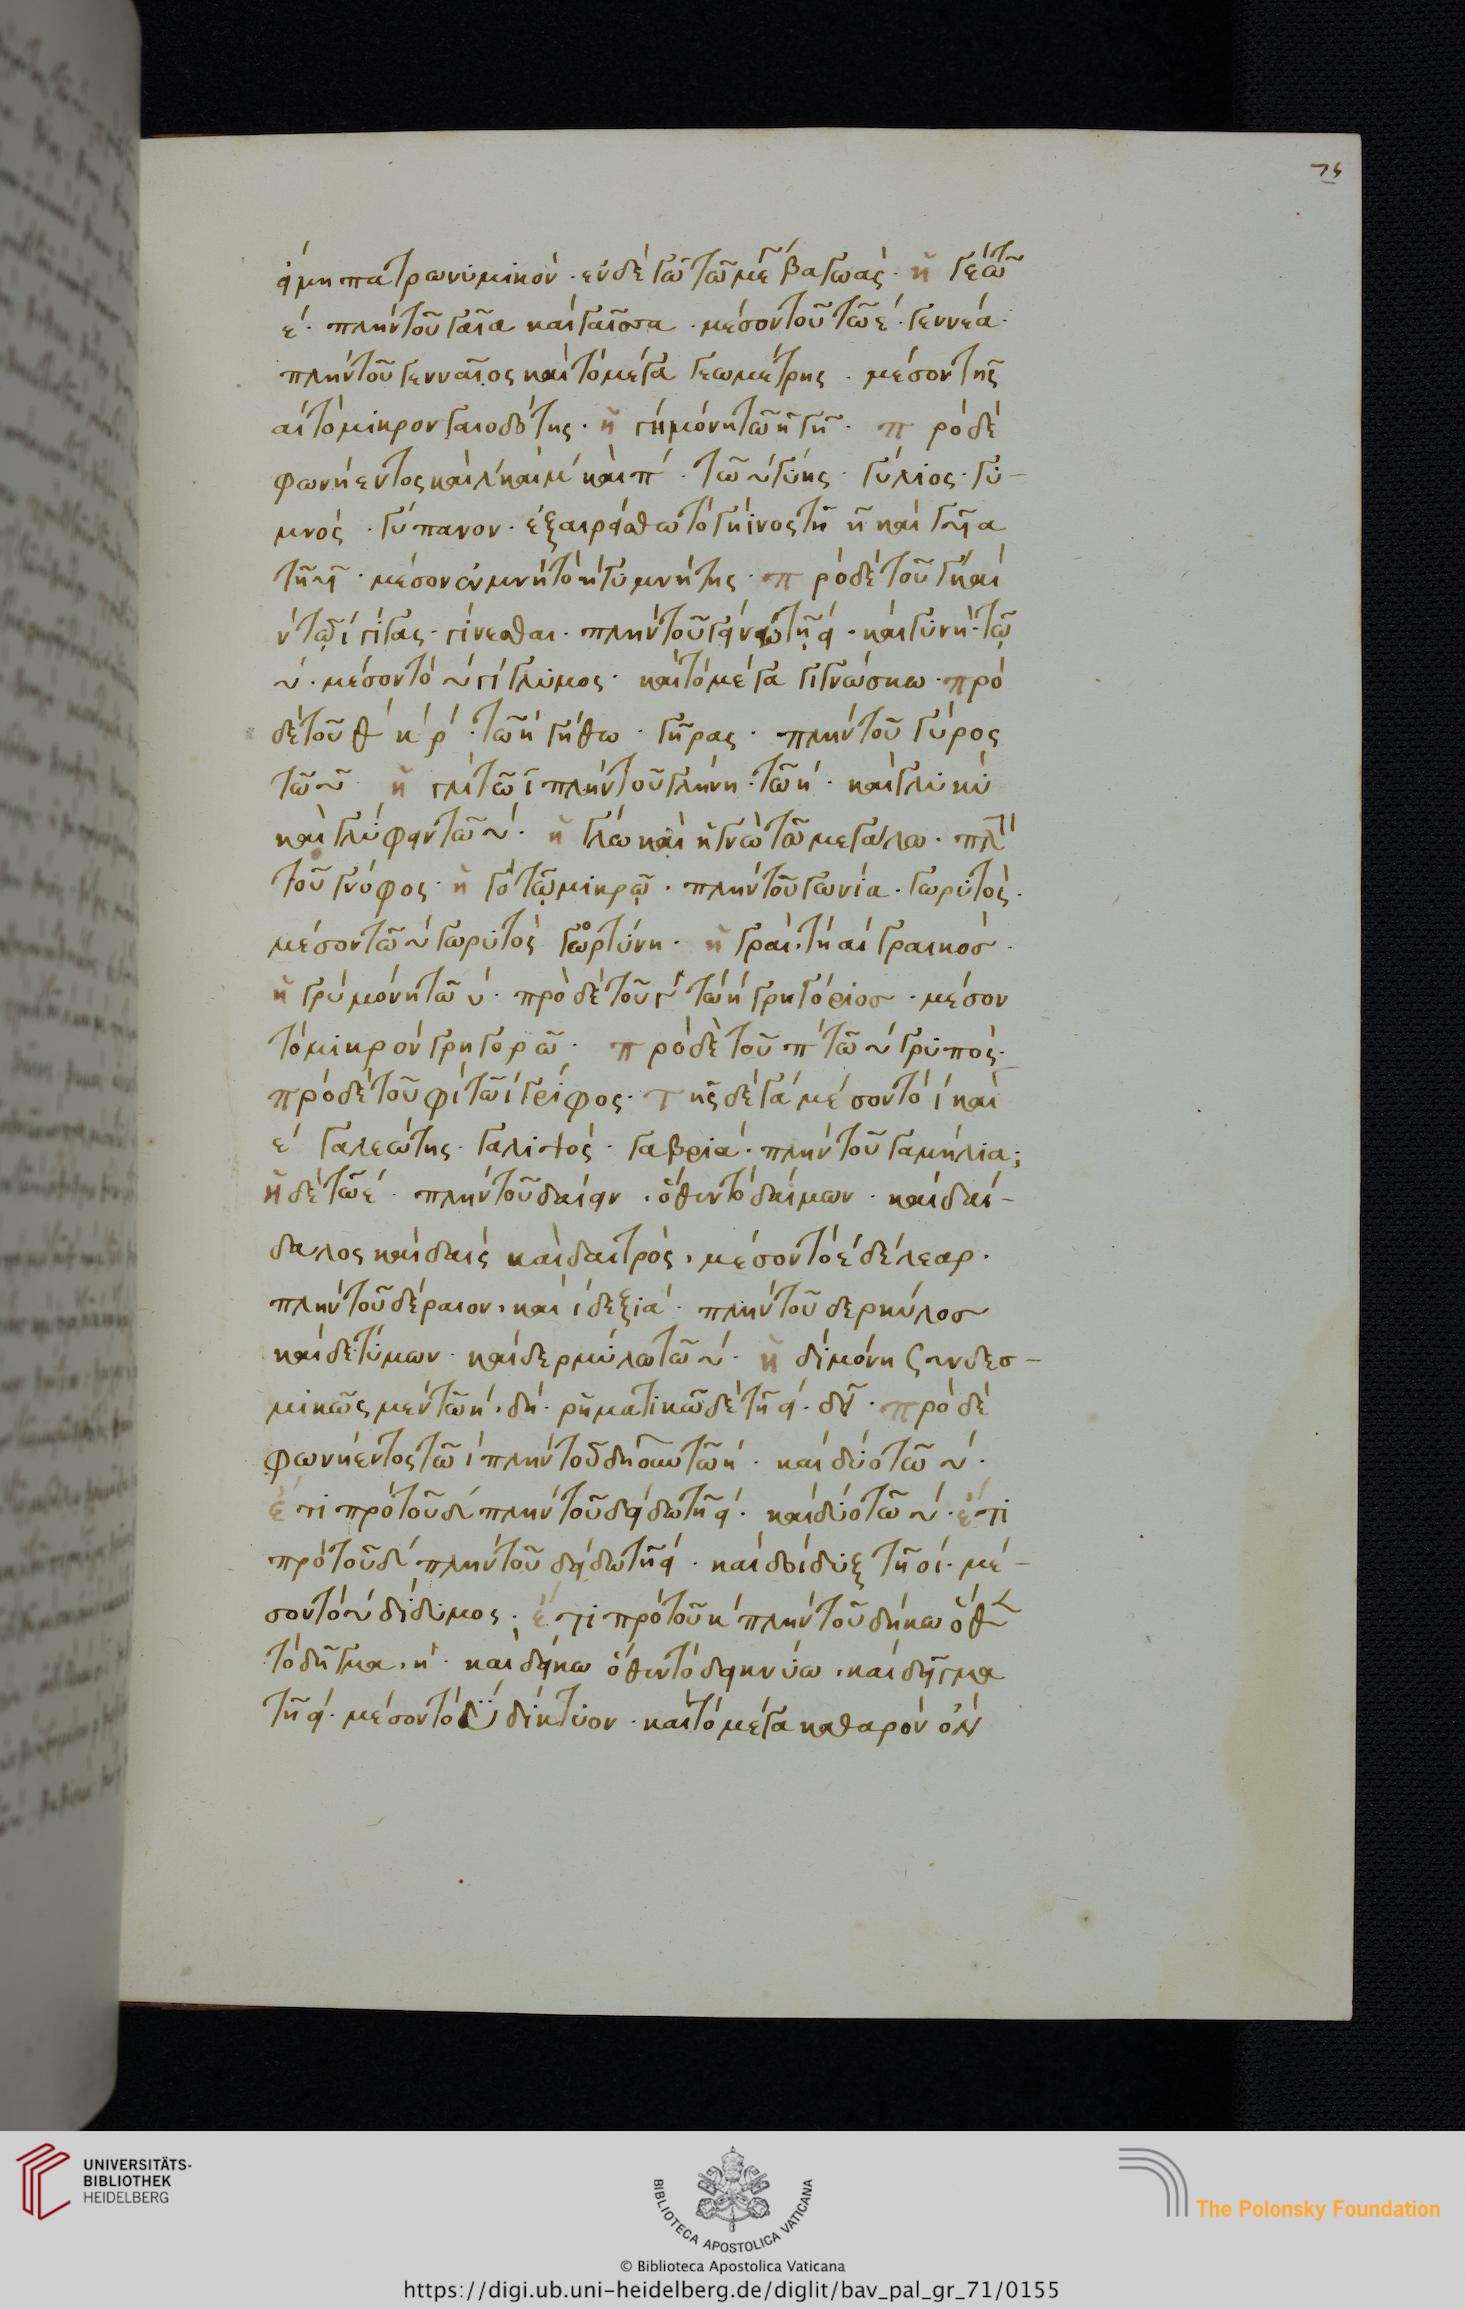 75
εἰ μὴ πατρωνυμικὸν. ἐν δὲ τῶ βαγώας. ἡ γε τῶ
ε. πλὴν τοῦ γαῖα καὶ γαῖσσα. μέσον τοῦ τῶ ε. γεννεά.
πλὴν τοῦ γενναῖος καὶ τὸ μέγα γεωμέτρης. μέσον τῆς
αι τὸ μικρὸν γαιοδότης. ἡ γη μόνη τῶ η γῆ. πρὸ δὲ
φωνήεντος καὶ λ καὶ μ καὶ π. τῶ υ γύης. γύλιος. γυ-
μνός. γύπανον. ἐξαιρείσθω τὸ γήϊνος τῆ η καὶ
μέσον τὸ η γυμνήτης. πρὸ δὲ τοῦ γ καὶ
ν τῶ ι γίγας. γίνεσθαι. πλὴν τοῦ τῆ ει. καὶ γυνή τῶ
υ. μέσον τὸ υ γίγλυμος. καὶ τὸ μέγα γιγνώσκω. πρὸ
δὲ τοῦ θ κ ρ. τῶ η γήθω. γῆρας. πλὴν τοῦ γύρος
τῶ υ. ἡ γλι τῶ ι πλὴν τοῦ γλήνη. τῶ η. καὶ γλυκύ
καὶ γλύφειν τῶ υ. ἡ γλω καὶ ἡ γνω τῶ μεγάλω. πλὴν
τοῦ γνόφος. ἡ γο τῶ μικρῶ. πλὴν τοῦ γωνία. γωρυτός.
μέσον τῶ υ γωρυτός γορτύνη. ἡ γραι τῆ αι γραικοσ.
ἡ γρυ μόνη τῶ υ. πρὸ δὲ τοῦ γ τῶ η γρηγόριοσ. μέσον
τὸ μικρὸν γρηγορῶ. πρὸ δὲ τοῦ π τῶ υ γρυπός.
πρὸ δὲ τοῦ φ τῶ ι γρίφος. τῆς δὲ γα μέσον τὸ ι καὶ
ε γαλεώτης. γαβριά. πλὴν τοῦ γαμήλια;
ἡ δε τῶ ε. πλὴν τοῦ δαίειν. ὅθεν τὸ δαίμων. καὶ δαί-
δαλος καὶ δαίς καὶ δαιτρός. μέσον τὸ ε δέλεαρ.
πλὴν τοῦ δέραιον. καὶ ι δεξιά. πλὴν τοῦ δερκύλοσ
καὶ δετύμων. καὶ δερμύλω τῶ υ. ἡ δι μόνη συνδεσ-
μικῶς μὲν τῶ η. δή. ῥηματικῶ δὲ τῆ ει. δεῖ. πρὸ δὲ
φωνήεντος τῶ ι πλὴν τοῦ τῶ η. καὶ δύο τῶ υ.
ἔτι πρὸ τοῦ δ πλὴν τοῦ δείδω τῆ ει. καὶ δύο τῶ υ. ἔτι
πρὸ τοῦ δ πλὴν τοῦ δείδω τῆ ει. καὶ δοίδυξ τῆ οι. μέ-
σον τὸ υ δίδυμος. ἔτι πρὸ τοῦ κ πλὴν τοῦ δήκω ὅθεν
τὸ δῆγμα. η. καὶ δείκω ὅθεν τὸ δεικνύω. καὶ δεῖγμα
τῆ ει. μέσον τὸ ϋ δίκτυον. καὶ τὸ μέγα καθαρὸν ὂν
UNIVERSITÄTS-
BIBLIOTHEK
HEIDELBERG
BIBLIOTECA APOSTOLICA VATICANA
The Polonsky Foundation
© Biblioteca Apostolica Vaticana
https://digi.ub.uni-heidelberg.de/diglit/bav_pal_gr_71/0155